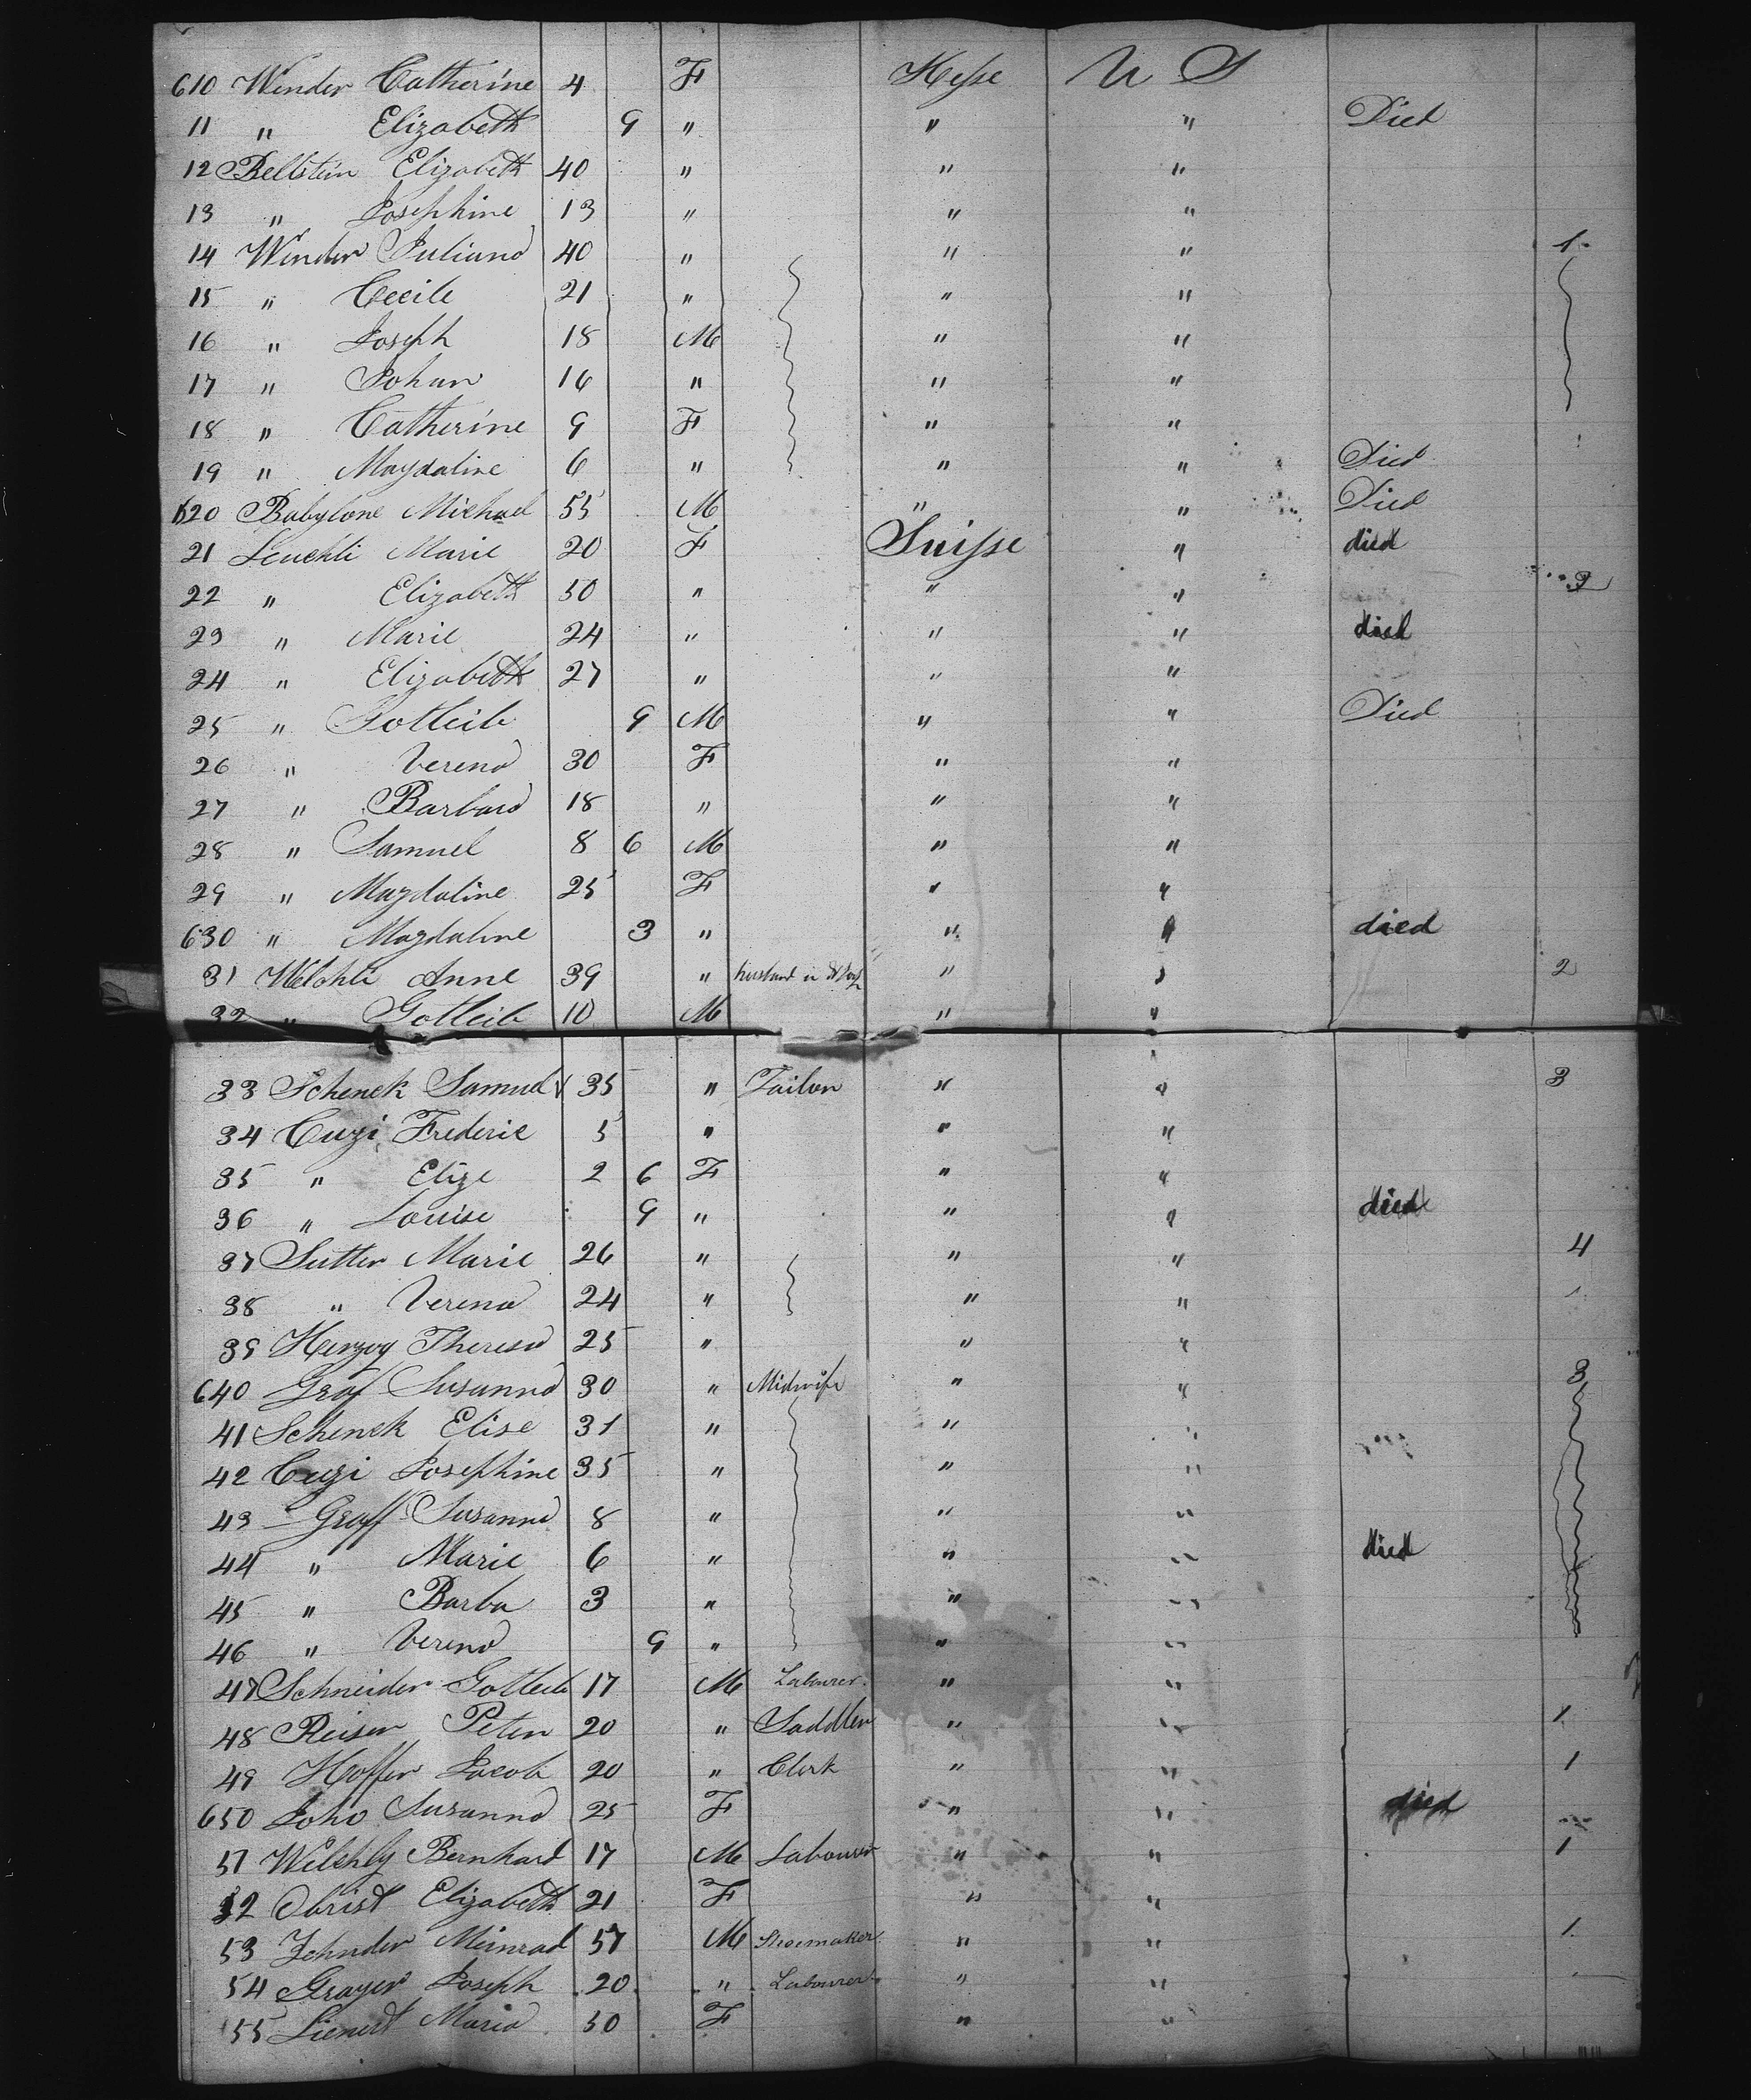 610 Winder Catherine 4 F Hesse U S
11 " Elizabeth 9 " " " Died
12 Bellstein Elizabeth 40 " " "
13 " Josephine 13 " " "
14 Winder Juliana 40 " " " 1
15 " Cecile 21 " " "
16 " Joseph 18 M " "
17 " Johan 16 " " "
18 " Catherine 9 F " "
19 " Magdaline 6 " " " Died
620 Babylone Michael 55 M " " Died
21 Leuchli Marie 20 F Suisse " died
22 " Elizabeth 50 " " " 2
23 " Marie 24 " " " died
24 " Elizabeth 27 " " "
25 " Gotleib 9 M " " Died
26 " Verena 30 F " "
27 " Barbara 18 " " "
28 " Samuel 8 6 M " "
29 " Magdaline 25 F " "
630 " Magdaline 3 " " " died
31 Welchli Anne 39 " husband in " " 2
32 " Gotleib 10 M " "
33 Schenck Samuel 35 " Tailor " " 3
34 Cuzi Frederic 5 " " "
35 " Elize 2 6 F " "
36 " Louise 9 " " " died
37 Sutter Marie 26 " " " 4
38 " Verena 24 " " "
39 Herzog Theresa 25 " " "
640 Graf Susanna 30 " Midwife " " 3
41 Schenck Elise 31 " " "
42 Cuzi Josephine 35 " " "
43 Graff Susanna 8 " " "
44 " Marie 6 " " " died
45 " Barba 3 " " "
46 " Verena 9 " " "
47 Schneider Gotleib 17 M Labourer " "
48 Reiser Peter 20 " Saddler " " 1
49 Hoffer Jacob 20 " Clerk " " 1
650 Joho Susanna 25 F " " died
51 Welchly Bernhard 17 M Labourer " " 1
52 Obrist Elizabeth 21 F " "
53 Zehnder Meinrad 57 M Shoemaker " " 1
54 Grayer Joseph 20 " Labourer " "
55 Lienert Maria 50 F " "